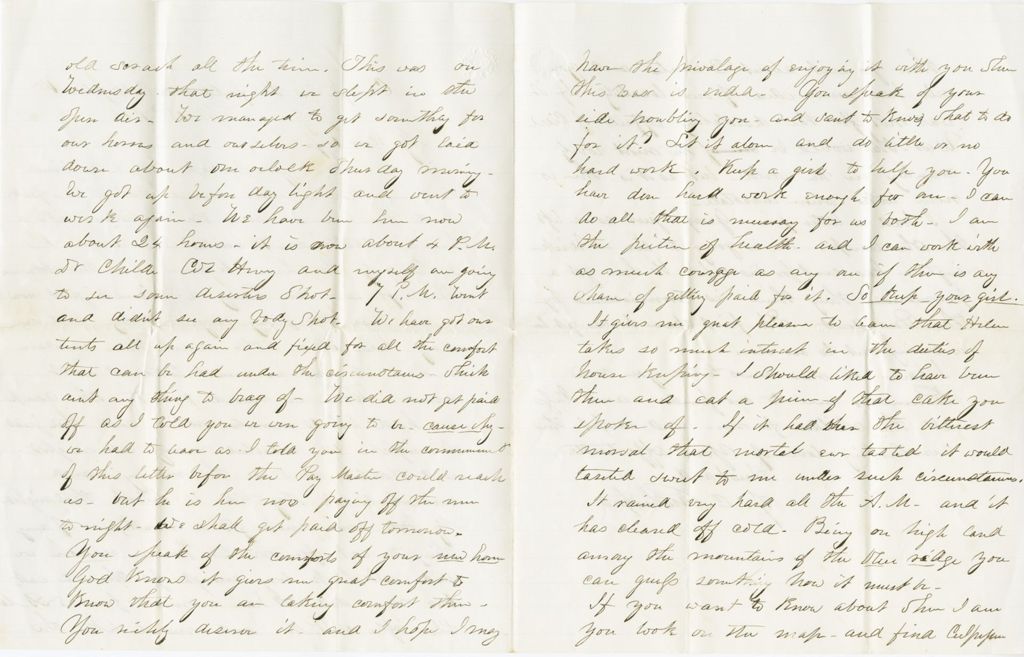 old scrach all the time. This was on
Wednesday. that night we slept in the
open air - We managed to get something for
our horses and ourselves - so we got laid
down about one oclock Thursday morning -
We got up before day light and went to
work again - We have been here now
about 24 hours - it is now about 4 P.M.
Dr Childe Col Henry and myself are going
to see some deserters Shot - 7 P.M. went
and didnt see any body Shot - We have got our
tents all up again and fixed for all the comfort
that can be had under the circumstances - Which
aint any thing to brag of - We did not get paid
off as I told you we were going to be - cause why -
we had to leave as I told you in the commencement
of this letter before the Pay Master could reach
us - but he is here now paying off the men
to night - We shall get paid off tomorrow.
You speak of the comforts of your new home
God knows it gives me great comfort to
know that you are taking comfort there -
You richly deserve it - and I hope I may
have the privalage of enjoying it with you when
this war is ended - You speak of your
side troubling you - and want to know what to do
for it? Let it alone and do little or no
hard work. Keep a girl to help you. You
have done hard work enough for one - I can
do all that is necessary for us both - I am
the picture of health - and I can work with
as much courage as any one if there is any
chance of getting paid for it. So keep your girl.
It gives me great pleasure to learn that Helen
takes so much interest in the duties of
house keeping - I should liked to have been
there and eat a piece of that cake you
spoke of. If it had been the bitterest
morsal that mortal ever tasted it would
tasted sweet to me under such circumstances.
It rained very hard all the A.M. and it
has cleared off cold - Being on high land
among the mountains of the blue ridge you
can guess something how it must be -
If you want to know about where I am
you look on the map - and find Culpeper